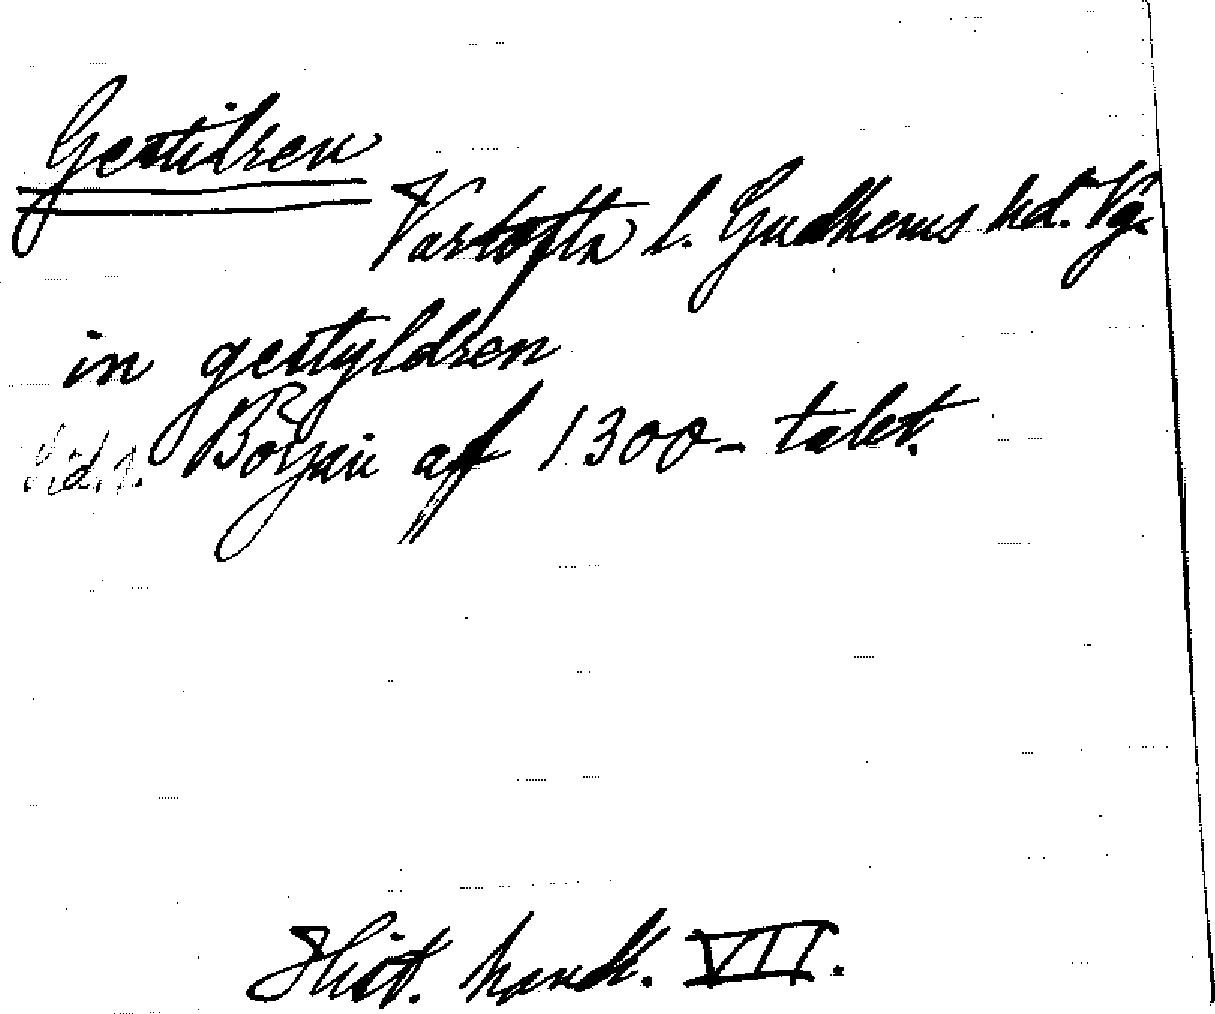 Gestilren
Vartofta l. Gudhems hd. Vg.
in gestyldren
Sid. 1. Början af 1300-talet.
Hist. handl. VII.